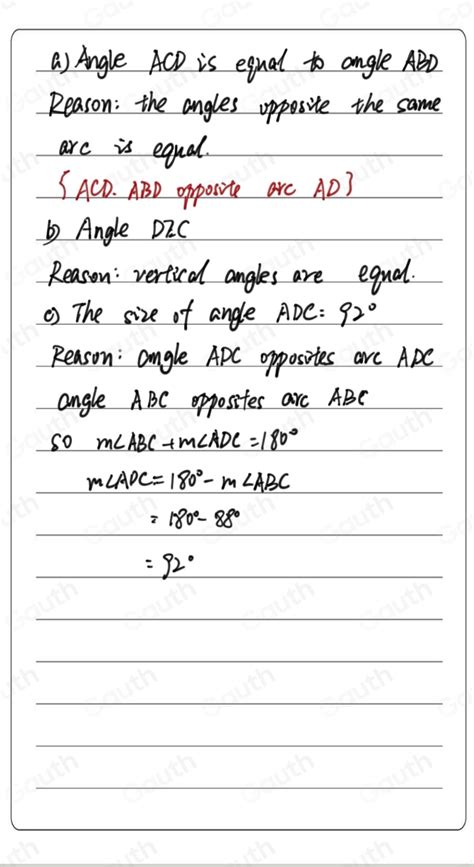 a) Angle ACD is equal to angle ABD
Reason: the angles opposite the same
arc is equal.
{ACD. ABD opposite arc AD}
b) Angle DZC
Reason: vertical angles are equal.
c) The size of angle ADC: 92°
Reason: angle ADC opposites arc ADC
angle ABC opposites arc ABC
so m∠ABC + m∠ADC = 180°
m∠ADC = 180° - m∠ABC
= 180° - 88°
= 92°